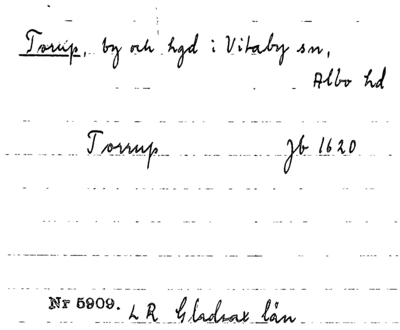 Torup, by och hgd i Vitaby sn,
Albo hd
Torrup Jb 1620
Nr 5909. LR Gladsax län